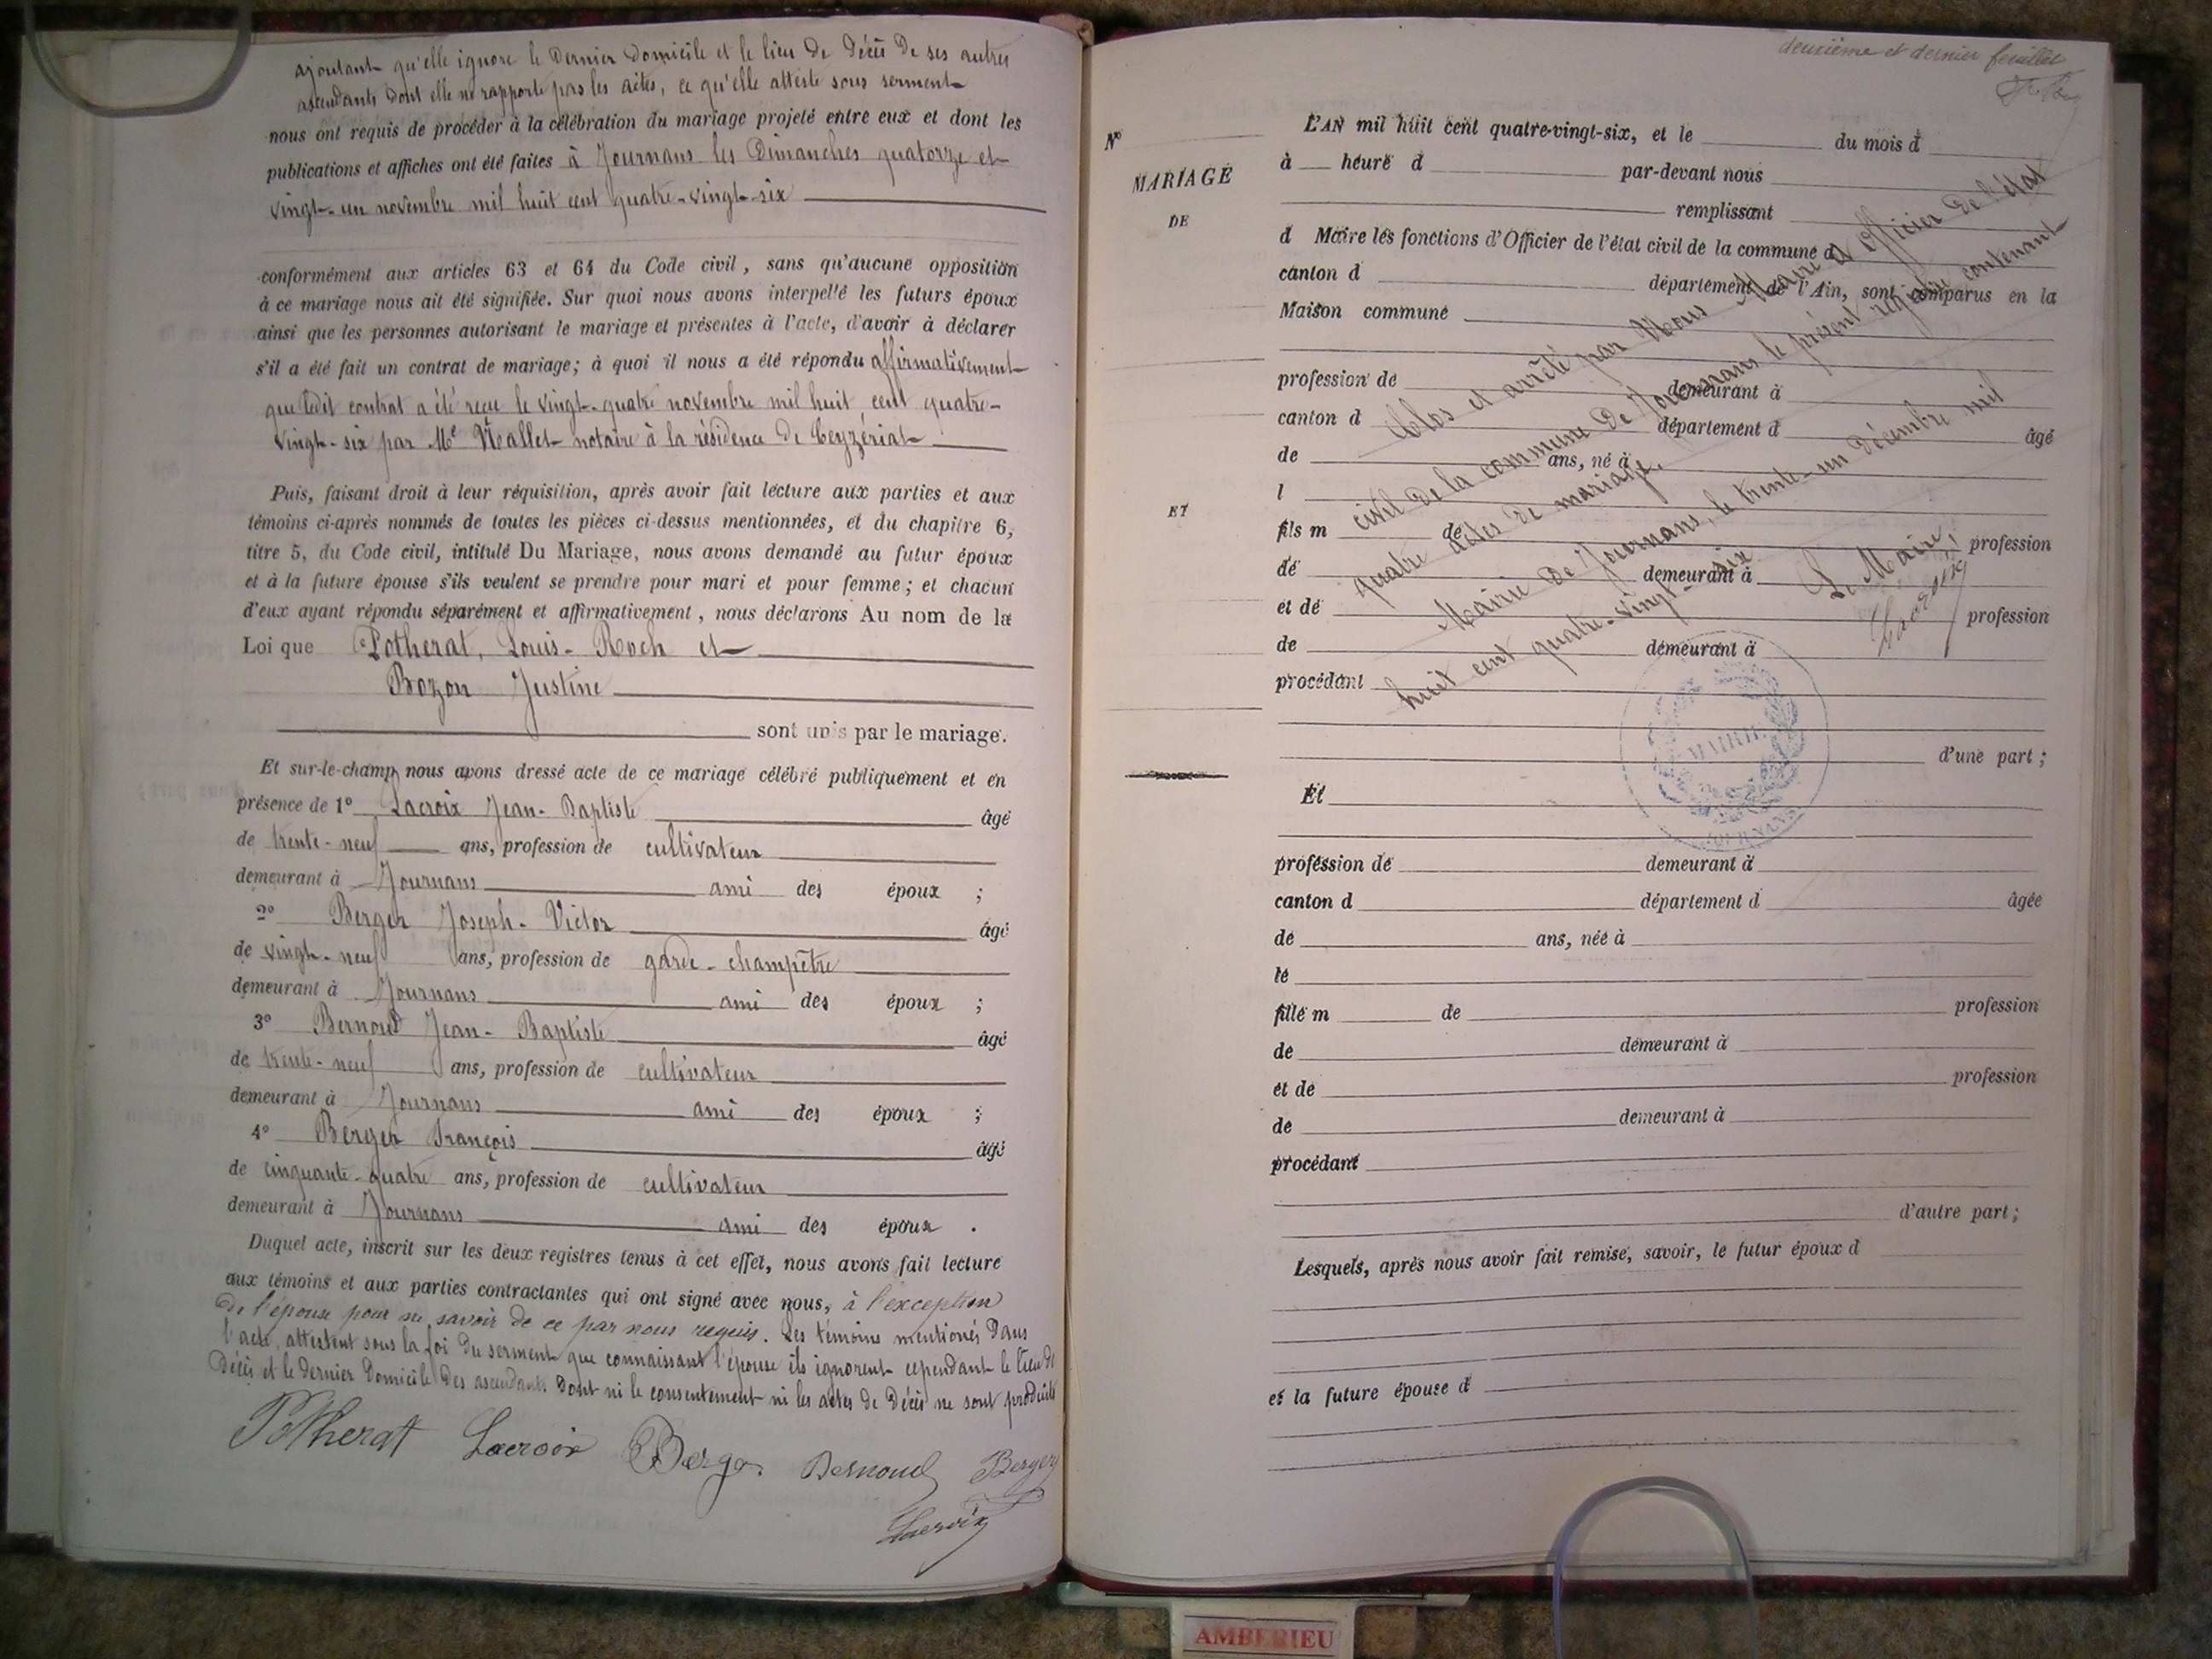 ajoutant qu'elle ignore le Dernier Domicile et le lieu de Décès De ses autres
ascendants dont elle ne rapporte pas les actes, ce qu'elle atteste sous serment
nous ont requis de procéder à la célébration du mariage projeté entre eux et dont les
publications et affiches ont été faites à Journans les Dimanches quatorze et
vingt-un novembre mil huit cent quatre-vingt-six
conformément aux articles 63 et 64 du Code civil, sans qu'aucune opposition
à ce mariage nous ait été signifiée. Sur quoi nous avons interpellé les futurs époux
ainsi que les personnes autorisant le mariage et présentes à l'acte, d'avoir à déclarer
s'il a été fait un contrat de mariage; à quoi il nous a été répondu affirmativement
que ledit contrat a été reçu le vingt-quatre novembre mil huit cent quatre-
vingt-six par Me Mallet notaire à la résidence de Ceyzériat
Puis, faisant droit à leur réquisition, après avoir fait lecture aux parties et aux
témoins ci-après nommés de toutes les pièces ci-dessus mentionnées, et du chapitre 6,
titre 5, du Code civil, intitulé Du Mariage, nous avons demandé au futur époux
et à la future épouse s'ils veulent se prendre pour mari et pour femme; et chacun
d'eux ayant répondu séparément et affirmativement, nous déclarons Au nom de la
Loi que Potherat, Louis-Roch et
Bozon Justine
sont unis par le mariage.
Et sur-le-champ nous avons dressé acte de ce mariage célébré publiquement et en
présence de 1° Lacroix Jean-Baptiste âgé
de trente-neuf ans, profession de cultivateur
demeurant à Journans ami des époux ;
2° Berger Joseph-Victor âgé
de vingt-neuf ans, profession de garde-champêtre
demeurant à Journans ami des époux ;
3° Bernoud Jean-Baptiste âgé
de trente-neuf ans, profession de cultivateur
demeurant à Journans ami des époux ;
4° Berger François âgé
de cinquante-quatre ans, profession de cultivateur
demeurant à Journans ami des époux .
Duquel acte, inscrit sur les deux registres tenus à cet effet, nous avons fait lecture
aux témoins et aux parties contractantes qui ont signé avec nous, à l'exception
de l'épouse pour ne savoir de ce par nous requis. Les témoins mentionés Dans
l'acte, attestent sous la foi du serment que connaissant l'épouse ils ignorent cependant le lieu de
Décès et le dernier Domicile des ascendants Dont ni le consentement ni les actes de Décès ne sont produits
Potherat Lacroix Berger Bernoud Berger
Lacroix
deuxième et dernier feuillet
N°
MARIAGE
DE
ET
L'AN mil huit cent quatre-vingt-six, et le du mois d
à heure d par-devant nous
remplissant
d Maire les fonctions d'Officier de l'état civil de la commune d
canton d département de l'Ain, sont comparus en la
Maison commune
profession de demeurant à
canton d département d âgé
de ans, né à
l
fils m de profession
de demeurant à
et de profession
de demeurant à
procédant
d'une part ;
Et
profession de demeurant à
canton d département d âgée
de ans, née à
le
fille m de profession
de demeurant à
et de profession
de demeurant à
procédant
d'autre part ;
Lesquels, après nous avoir fait remise, savoir, le futur époux d
et la future épouse d
Clos et arrêté par Nous Maire et Officier de l'état
civil de la commune de Journans le présent registre contenant
quatre actes de mariage.
Mairie de Journans, le trente-un Décembre mil
huit cent quatre-vingt-six
Le Maire,
Lacroix
MAIRIE
JOURNANS
AMBERIEU